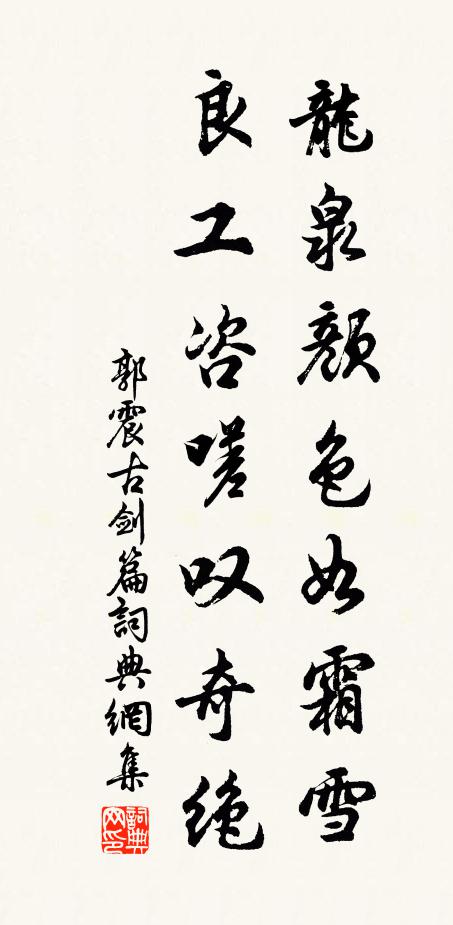 龍泉顏色如霜雪
良工咨嗟叹奇絶
郭震古劍篇詞典網集
詞典網印